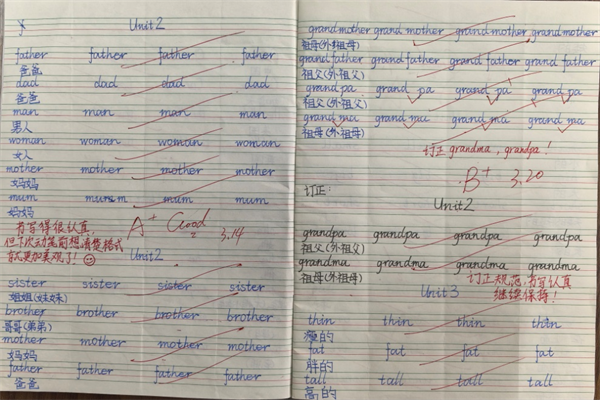 Unit2
father father father father
爸爸
dad dad dad dad
爸爸
man man man man
男人
woman woman woman woman
女人
mother mother mother mother
妈妈
mum mum mum mum
妈妈
书写得很认真,
但下次动笔前想清楚格式
就更加美观了!
A+ Good
3.14
Unit2
sister sister sister sister
姐姐(妹妹)
brother brother brother brother
哥哥(弟弟)
mother mother mother mother
妈妈
father father father father
爸爸
grandmother grand mother grand mother grandmother
祖母(外祖母)
grand father grand father grand father grand father
祖父(外祖父)
grand pa grand pa grand pa grand pa
祖父(外祖父)
grand ma grand ma grand ma grand ma
祖母(外祖母)
订正 grandma, grandpa!
B+ 3.20
订正:
Unit2
grandpa grandpa grandpa grandpa
祖父(外祖父)
grandma grandma grandma grandma
祖母(外祖母)
订正规范,书写认真
继续保持!
Unit3
thin thin thin thin
瘦的
fat fat fat fat
胖的
tall tall tall tall
高的